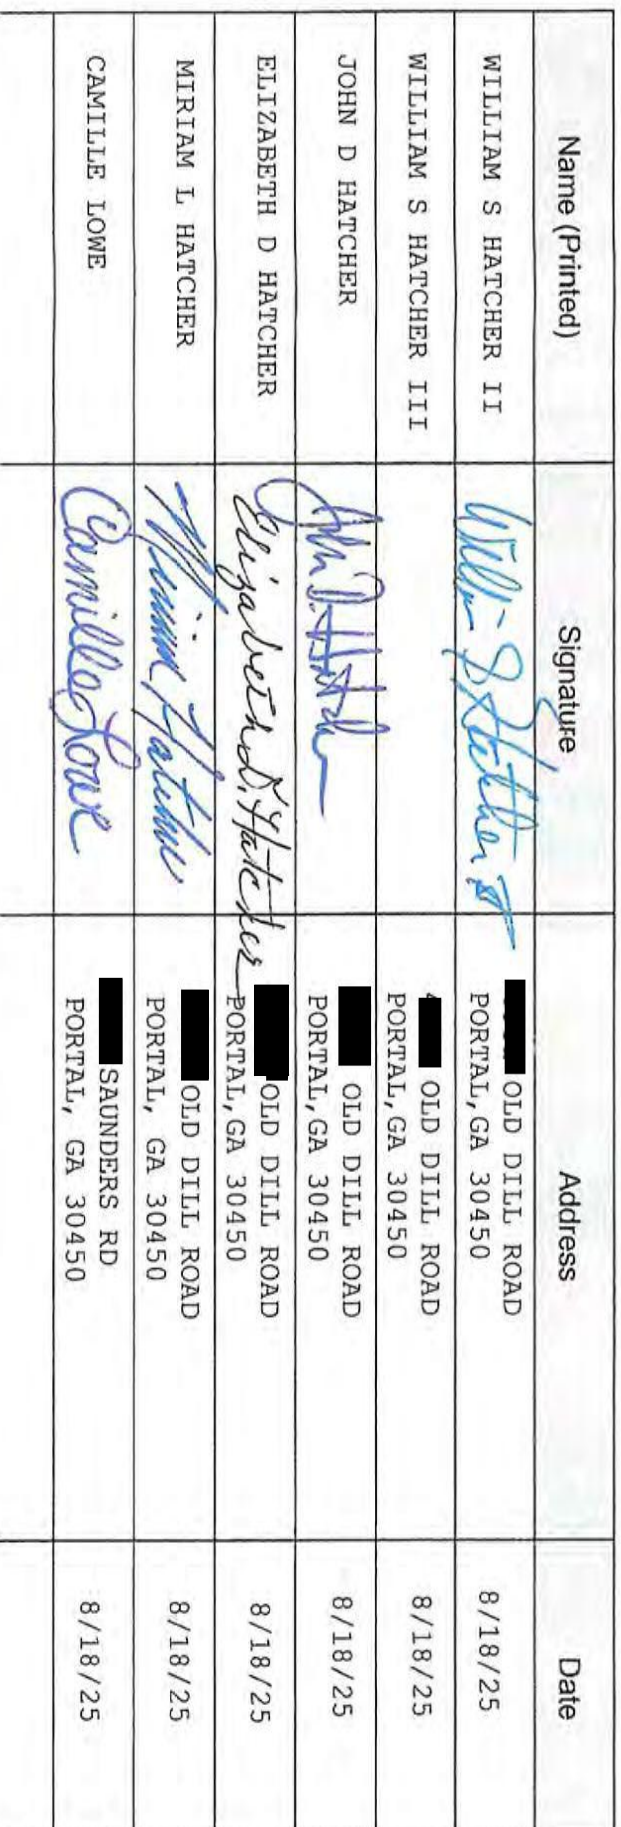 Name (Printed) Signature Address Date
WILLIAM S HATCHER II William S Hatcher II OLD DILL ROAD 8/18/25
PORTAL, GA 30450
WILLIAM S HATCHER III OLD DILL ROAD 8/18/25
PORTAL, GA 30450
JOHN D HATCHER John D. Hatcher OLD DILL ROAD 8/18/25
PORTAL, GA 30450
ELIZABETH D HATCHER Elizabeth D. Hatcher OLD DILL ROAD 8/18/25
PORTAL, GA 30450
MIRIAM L HATCHER Miriam Hatcher OLD DILL ROAD 8/18/25
PORTAL, GA 30450
CAMILLE LOWE Camille Lowe SAUNDERS RD 8/18/25
PORTAL, GA 30450